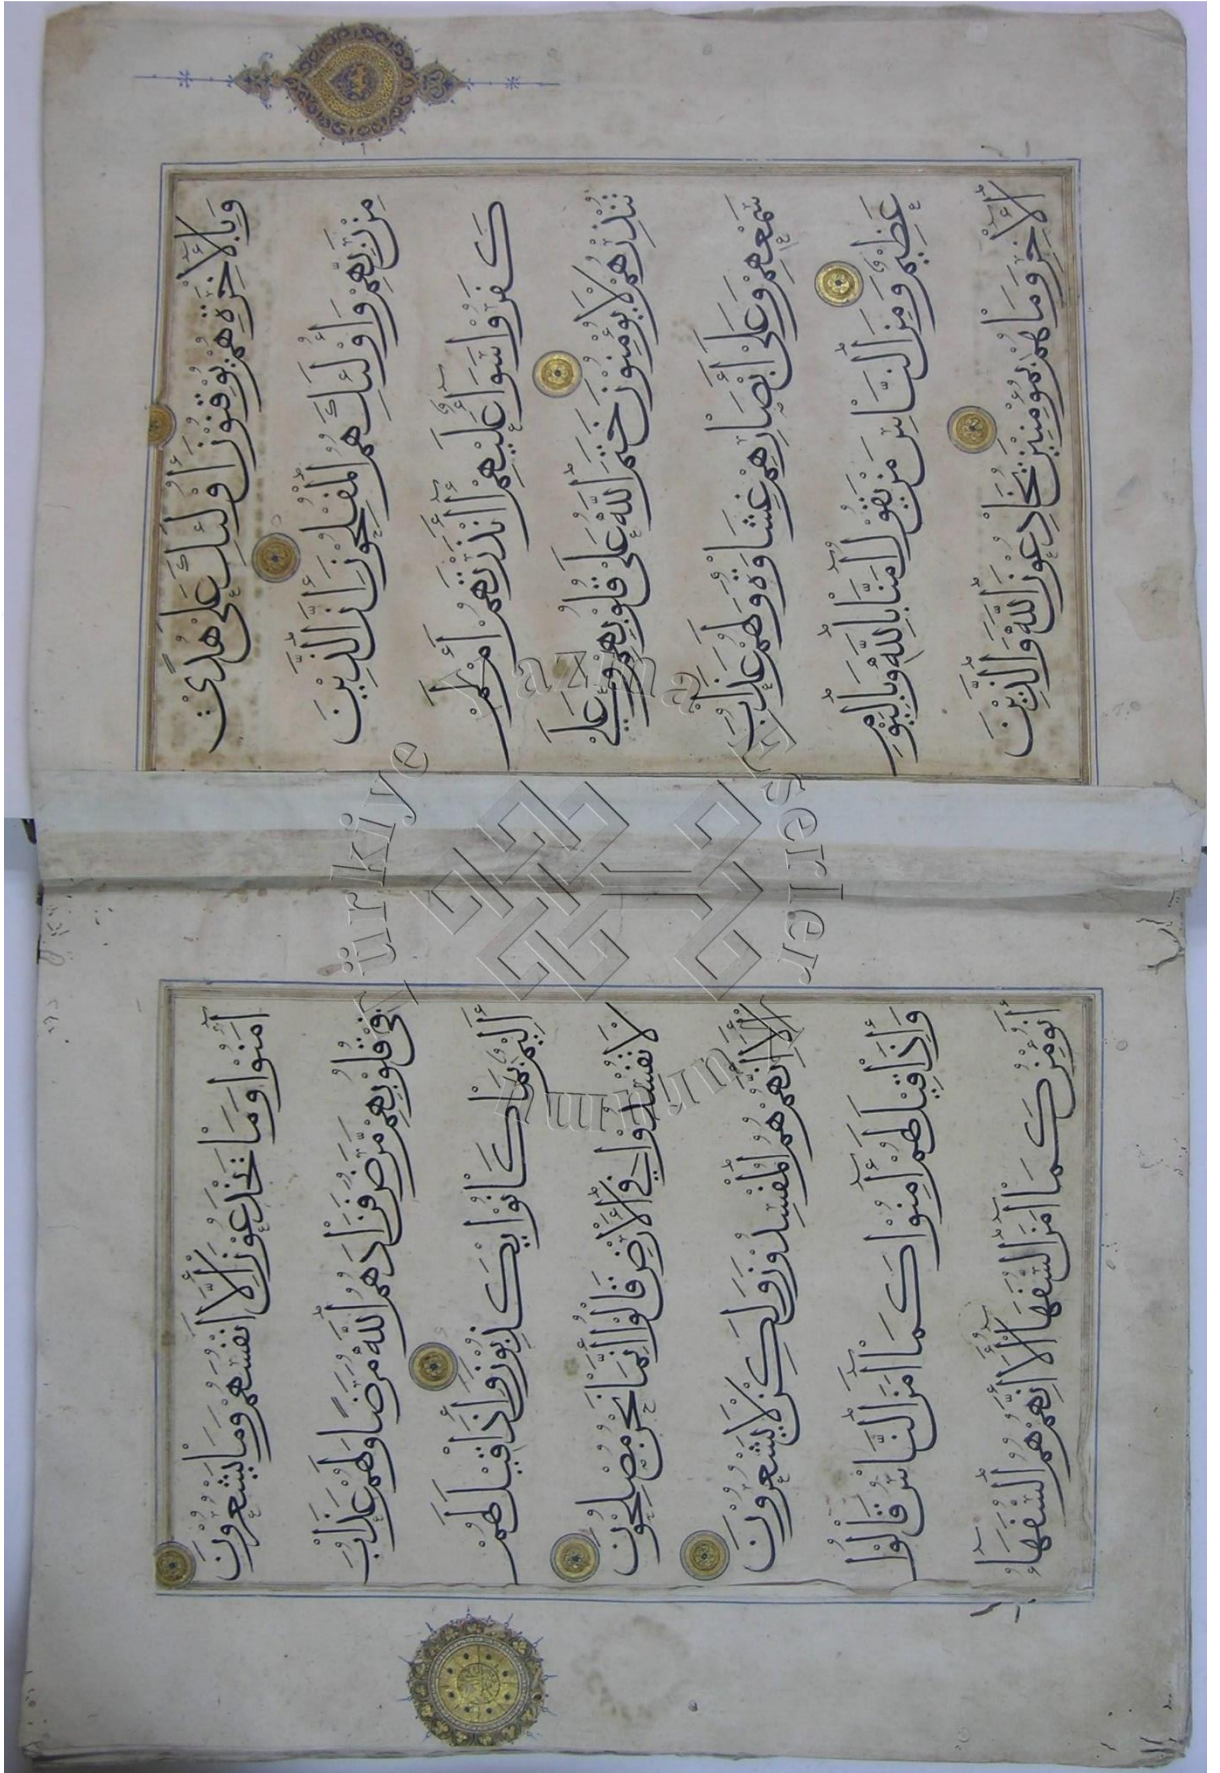 وَبِالْأَخِرَةِ هُمْ يُوقِنُونَ أُولَٰئِكَ عَلَىٰ هُدًى
مِنْ رَبِّهِمْ وَأُولَٰئِكَ هُمُ الْمُفْلِحُونَ إِنَّ الَّذِينَ
كَفَرُوا سَوَآءٌ عَلَيْهِمْ أَأَنْذَرْتَهُمْ أَمْ لَمْ
تُنْذِرْهُمْ لَا يُؤْمِنُونَ خَتَمَ اللَّهُ عَلَىٰ قُلُوبِهِمْ وَعَلَىٰ
سَمْعِهِمْ وَعَلَىٰ أَبْصَارِهِمْ غِشَاوَةٌ وَلَهُمْ عَذَابٌ
عَظِيمٌ وَمِنَ النَّاسِ مَنْ يَقُولُ آمَنَّا بِاللَّهِ وَبِالْيَوْمِ
الْآخِرِ وَمَا هُمْ بِمُؤْمِنِينَ يُخَادِعُونَ اللَّهَ وَالَّذِينَ
آمَنُوا وَمَا يَخْدَعُونَ إِلَّا أَنْفُسَهُمْ وَمَا يَشْعُرُونَ
فِي قُلُوبِهِمْ مَرَضٌ فَزَادَهُمُ اللَّهُ مَرَضًا وَلَهُمْ عَذَابٌ
أَلِيمٌ بِمَا كَانُوا يَكْذِبُونَ وَإِذَا قِيلَ لَهُمْ
لَا تُفْسِدُوا فِي الْأَرْضِ قَالُوا إِنَّمَا نَحْنُ مُصْلِحُونَ
أَلَا إِنَّهُمْ هُمُ الْمُفْسِدُونَ وَلَٰكِنْ لَا يَشْعُرُونَ
وَإِذَا قِيلَ لَهُمْ آمِنُوا كَمَا آمَنَ النَّاسُ قَالُوا
أَنُؤْمِنُ كَمَا آمَنَ السُّفَهَآءُ أَلَا إِنَّهُمْ هُمُ السُّفَهَآءُ
Türkiye Yazma Eserler Kurumu